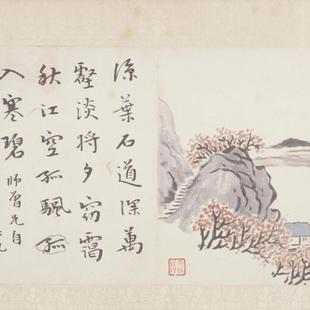 涼葉石道深萬
壑淡將夕窈靄
秋江空孤颿孤
入寒碧
師曾兄自